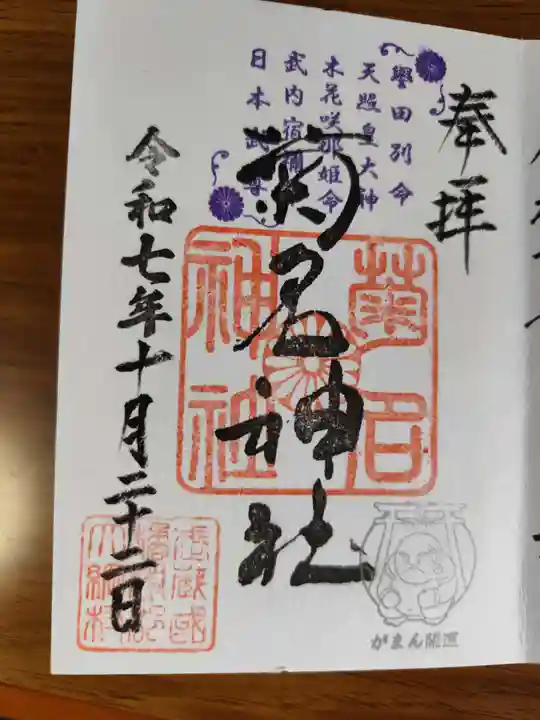 奉拝
譽田別命
天照皇大神
木花咲耶姫命
武内宿禰
日本武尊
菊名神社
菊名
神社
令和七年十月二十二日
武蔵國
橘樹郡
大綱村
がまん開運